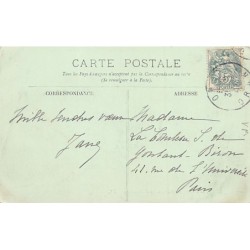 CARTE POSTALE
Tous les Pays étrangers n'acceptent pas la Correspondance au recto
(Se renseigner à la Poste)
CORRESPONDANCE
ADRESSE
Mille tendres
Madame
La Comtesse S. de
Gontaut-Biron
41. rue de l'Université
Paris